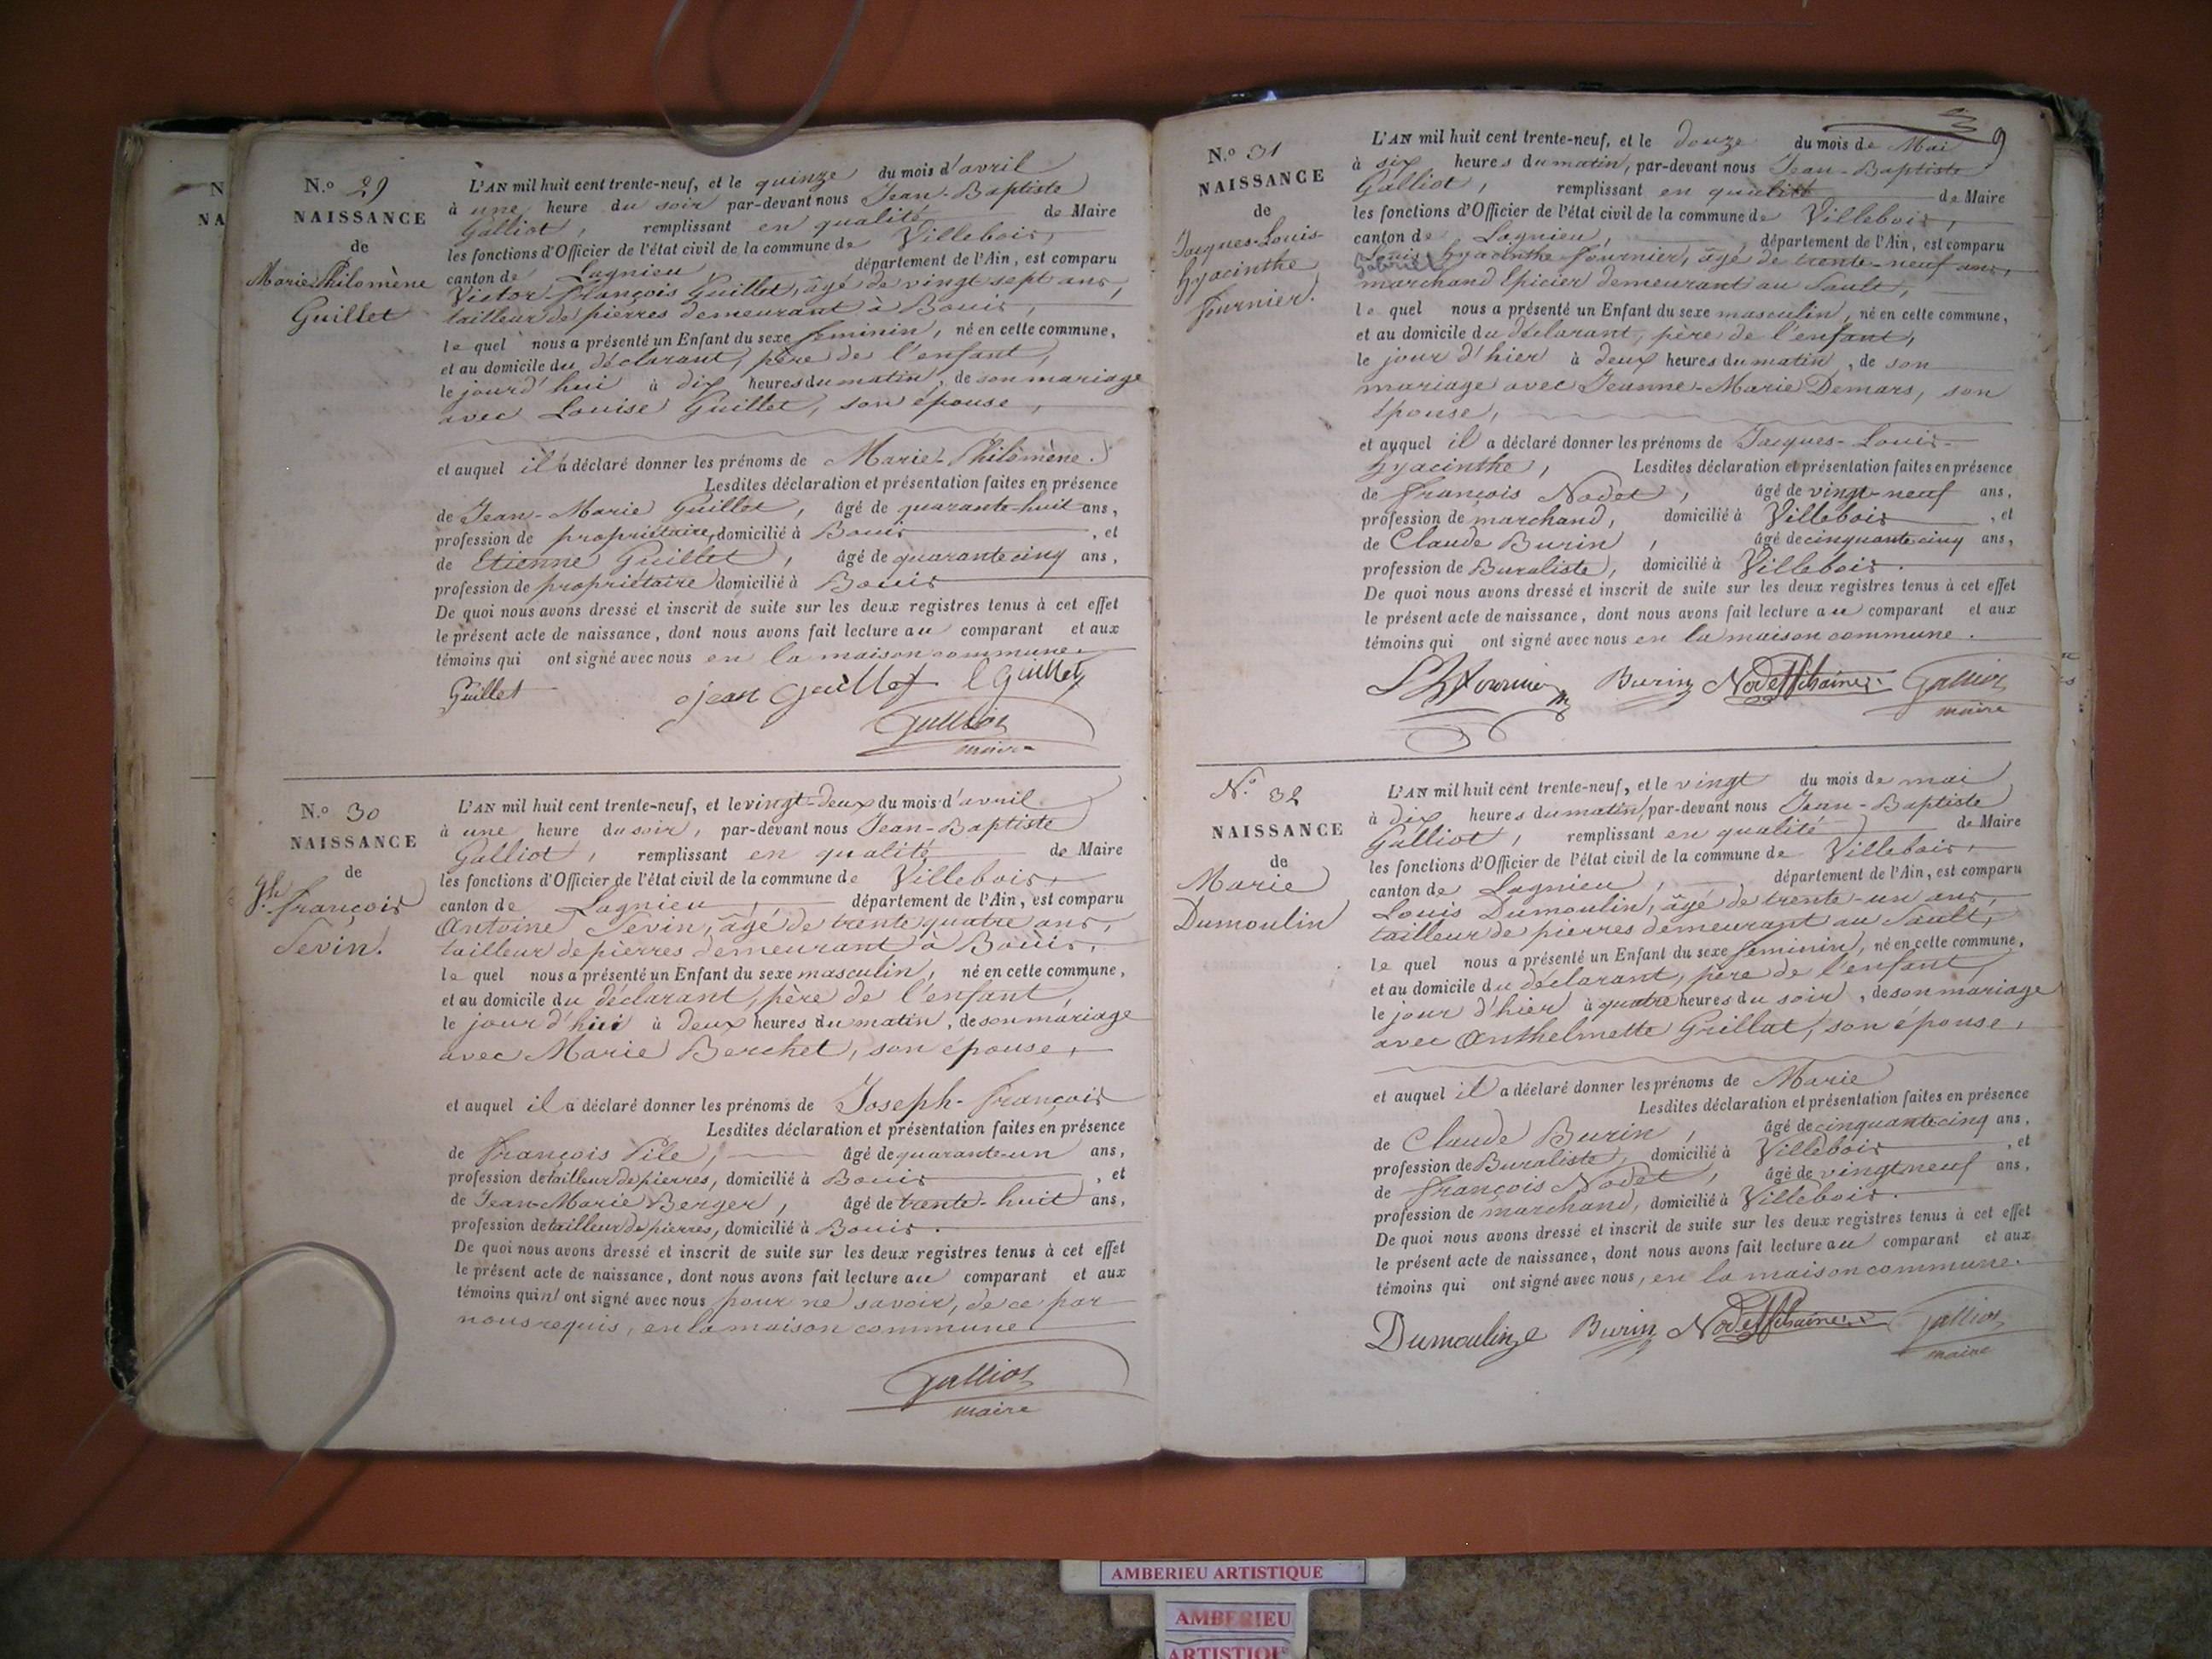 N.° 29
NAISSANCE
de
Marie Philomène
Guillet
L'AN mil huit cent trente-neuf, et le quinze du mois d'avril
à une heure du soir par-devant nous Jean-Baptiste
Galliot, remplissant en qualité de Maire
les fonctions d'Officier de l'état civil de la commune de Villebois,
canton de Lagnieu département de l'Ain, est comparu
Victor-François Guillet, âgé de vingt sept ans,
tailleur de pierres demeurant à Bouis,
le quel nous a présenté un Enfant du sexe feminin, né en cette commune,
et au domicile du déclarant, père de l'enfant,
le jour d'hui à dix heures du matin, de son mariage
avec Louise Guillet, son épouse,
et auquel il a déclaré donner les prénoms de Marie-Philomène.
Lesdites déclaration et présentation faites en présence
de Jean-Marie Guillet, âgé de quarante-huit ans,
profession de propriétaire, domicilié à Bouis, et
de Etienne Guillet, âgé de quarante cinq ans,
profession de propriétaire domicilié à Bouis
De quoi nous avons dressé et inscrit de suite sur les deux registres tenus à cet effet
le présent acte de naissance, dont nous avons fait lecture au comparant et aux
témoins qui ont signé avec nous en la maison commune.
Guillet jean Guillet E Guillet
Galliot
maire
N.° 30
NAISSANCE
de
Jh. François
Sevin.
L'AN mil huit cent trente-neuf, et le vingt-deux du mois d'avril
à une heure du soir, par-devant nous Jean-Baptiste
Galliot, remplissant en qualité de Maire
les fonctions d'Officier de l'état civil de la commune de Villebois,
canton de Lagnieu, département de l'Ain, est comparu
Antoine Sevin, âgé de trente quatre ans,
tailleur de pierres demeurant à Bouis,
le quel nous a présenté un Enfant du sexe masculin, né en cette commune,
et au domicile du déclarant, père de l'enfant,
le jour d'hui à deux heures du matin, de son mariage
avec Marie Berchet, son épouse,
et auquel il a déclaré donner les prénoms de Joseph-François
Lesdites déclaration et présentation faites en présence
de François Pile, âgé de quarante-un ans,
profession de tailleur de pierres, domicilié à Bouis, et
de Jean-Marie Berger, âgé de trente-huit ans,
profession de tailleur de pierres, domicilié à Bouis.
De quoi nous avons dressé et inscrit de suite sur les deux registres tenus à cet effet
le présent acte de naissance, dont nous avons fait lecture au comparant et aux
témoins qui n' ont signé avec nous pour ne savoir, de ce par
nous requis, en la maison commune
Galliot
maire
9
N.° 31
NAISSANCE
de
Jacques-Louis-
Hyacinthe
Fournier.
L'AN mil huit cent trente-neuf, et le douze du mois de Mai
à six heures du matin, par-devant nous Jean-Baptiste
Galliot, remplissant en qualité de Maire
les fonctions d'Officier de l'état civil de la commune de Villebois,
canton de Lagnieu, département de l'Ain, est comparu
Louis-Hyacinthe Fournier, âgé de trente-neuf ans,
Gabriel
marchand Epicier demeurant au Sault,
le quel nous a présenté un Enfant du sexe masculin, né en cette commune,
et au domicile du déclarant, père de l'enfant,
le jour d'hier à deux heures du matin, de son
mariage avec Jeanne-Marie Demars, son
épouse,
et auquel il a déclaré donner les prénoms de Jacques-Louis-
Hyacinthe, Lesdites déclaration et présentation faites en présence
de François Nodet, âgé de vingt-neuf ans,
profession de marchand, domicilié à Villebois, et
de Claude Burin, âgé de cinquante cinq ans,
profession de Buraliste, domicilié à Villebois.
De quoi nous avons dressé et inscrit de suite sur les deux registres tenus à cet effet
le présent acte de naissance, dont nous avons fait lecture au comparant et aux
témoins qui ont signé avec nous en la maison commune.
Fournier Burin Nodet Galliot
maire
N.° 32
NAISSANCE
de
Marie
Dumoulin
L'AN mil huit cent trente-neuf, et le vingt du mois de mai
à dix heures du matin, par-devant nous Jean-Baptiste
Galliot, remplissant en qualité de Maire
les fonctions d'Officier de l'état civil de la commune de Villebois,
canton de Lagnieu, département de l'Ain, est comparu
Louis Dumoulin, âgé de trente-un ans,
tailleur de pierres demeurant au Sault,
le quel nous a présenté un Enfant du sexe feminin, né en cette commune,
et au domicile du déclarant, père de l'enfant,
le jour d'hier à quatre heures du soir, de son mariage
avec Anthelmette Grillat, son épouse,
et auquel il a déclaré donner les prénoms de Marie
Lesdites déclaration et présentation faites en présence
de Claude Burin, âgé de cinquante cinq ans,
profession de Buraliste, domicilié à Villebois, et
de François Nodet, âgé de vingt neuf ans,
profession de marchand, domicilié à Villebois.
De quoi nous avons dressé et inscrit de suite sur les deux registres tenus à cet effet
le présent acte de naissance, dont nous avons fait lecture au comparant et aux
témoins qui ont signé avec nous, en la maison commune.
Dumoulin Burin Nodet Galliot
maire
AMBERIEU ARTISTIQUE
AMBERIEU
ARTISTIQUE